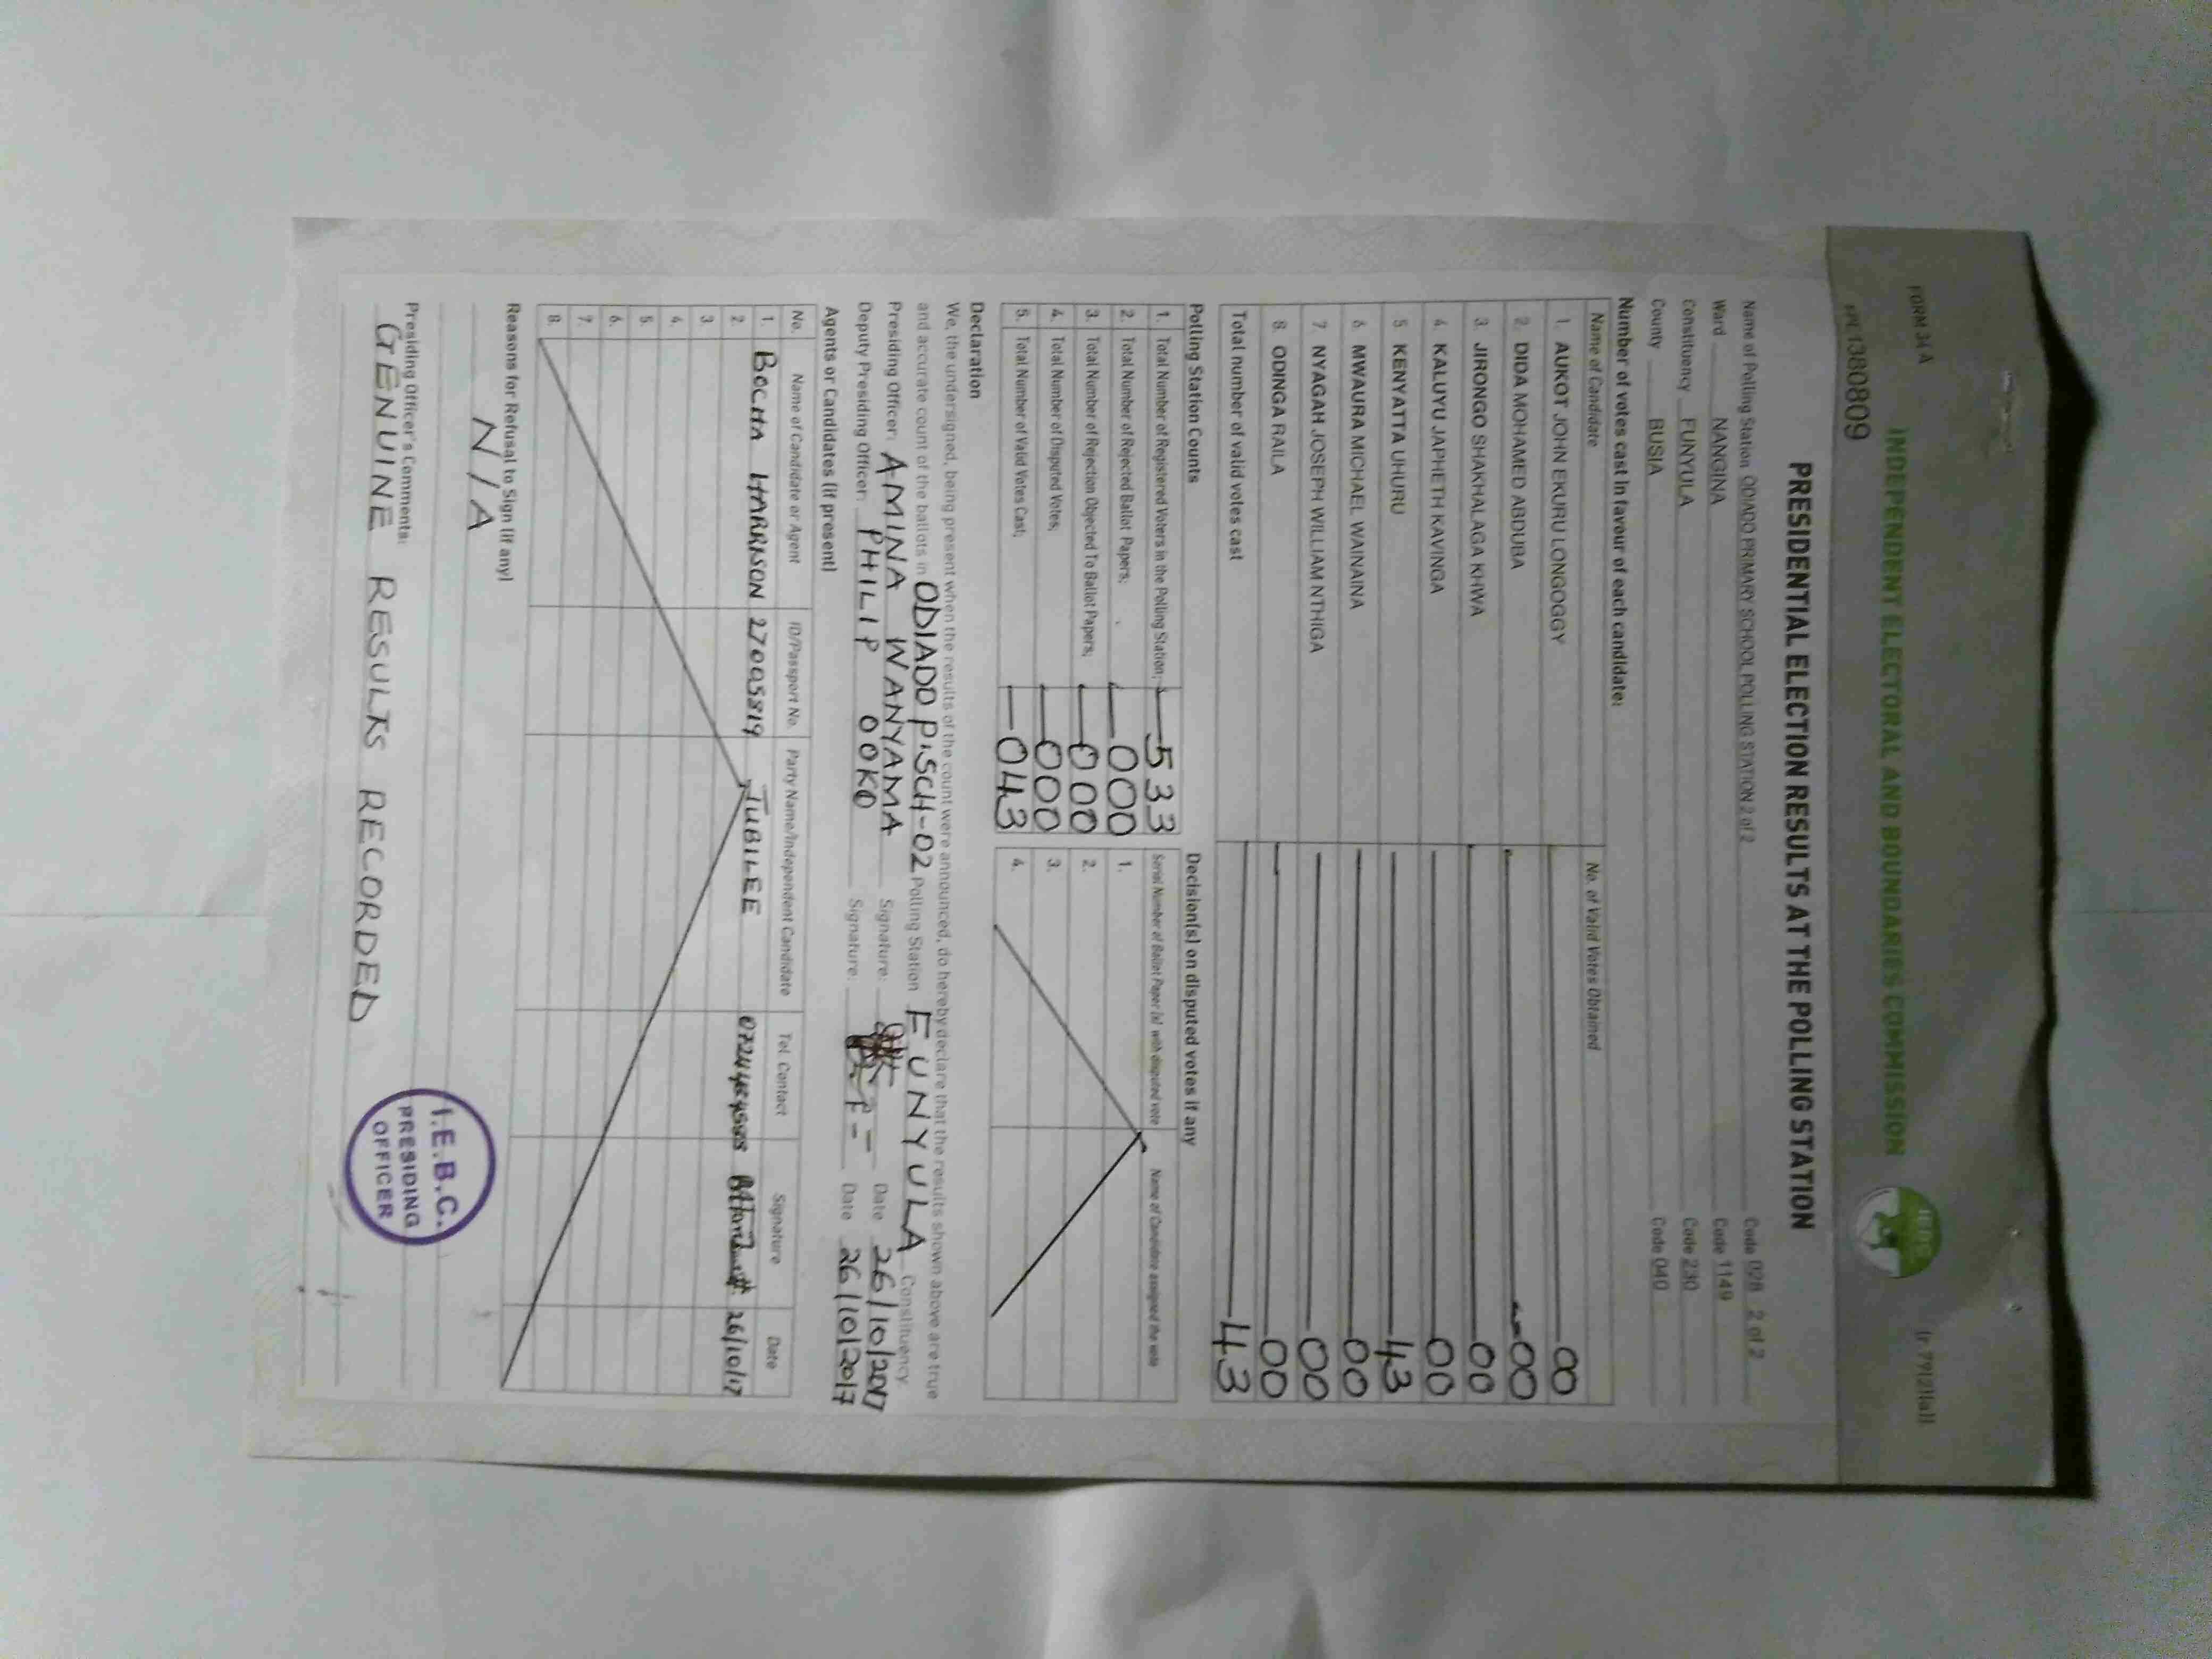 FORM 34 A
(r.79(2)(a))
INDEPENDENT ELECTORAL AND BOUNDARIES COMMISSION
IEBC
138089
PRESIDENTIAL ELECTION RESULTS AT THE POLLING STATION
Name of Polling Station ODIADO PRIMARY SCHOOL POLLING STATION 2 of 2 Code 028 2 of 2
Ward NANGINA Code 1149
Constituency FUNYULA Code 230
County BUSIA Code 040
Number of votes cast in favour of each candidate:
Name of Candidate No. of Valid Votes Obtained
1. AUKOT JOHN EKURU LONGOGGY 00
2. DIDA MOHAMED ABDUBA 00
3. JIRONGO SHAKHALAGA KHWA 00
4. KALUYU JAPHETH KAVINGA 00
5. KENYATTA UHURU 43
6. MWAURA MICHAEL WAINAINA 00
7. NYAGAH JOSEPH WILLIAM NTHIGA 00
8. ODINGA RAILA 00
Total number of valid votes cast 43
Polling Station Counts
1. Total Number of Registered Voters in the Polling Station; 533
2. Total Number of Rejected Ballot Papers; 000
3. Total Number of Rejection Objected To Ballot Papers; 000
4. Total Number of Disputed Votes; 000
5. Total Number of Valid Votes Cast; 043
Decision(s) on disputed votes if any
Serial Number of Ballot Paper (s) with disputed vote Name of Candidate assigned the vote
1.
2.
3.
4.
Declaration
We, the undersigned, being present when the results of the count were announced, do hereby declare that the results shown above are true
and accurate count of the ballots in ODIADO P.SCH-02 Polling Station FUNYULA Constituency.
Presiding Officer: AMINA WANYAMA Signature: Date 26/10/2017
Deputy Presiding Officer: PHILIP OOKO Signature: Date 26/10/2017
Agents or Candidates (if present)
No. Name of Candidate or Agent ID/Passport No. Party Name/Independent Candidate Tel. Contact Signature Date
1. BOCHA HARRISON 27005819 JUBILEE 26/10/17
2.
3.
4.
5.
6.
7.
8.
Reasons for Refusal to Sign (if any)
N/A
Presiding Officer's Comments:
GENUINE RESULTS RECORDED
I.E.B.C.
PRESIDING
OFFICER